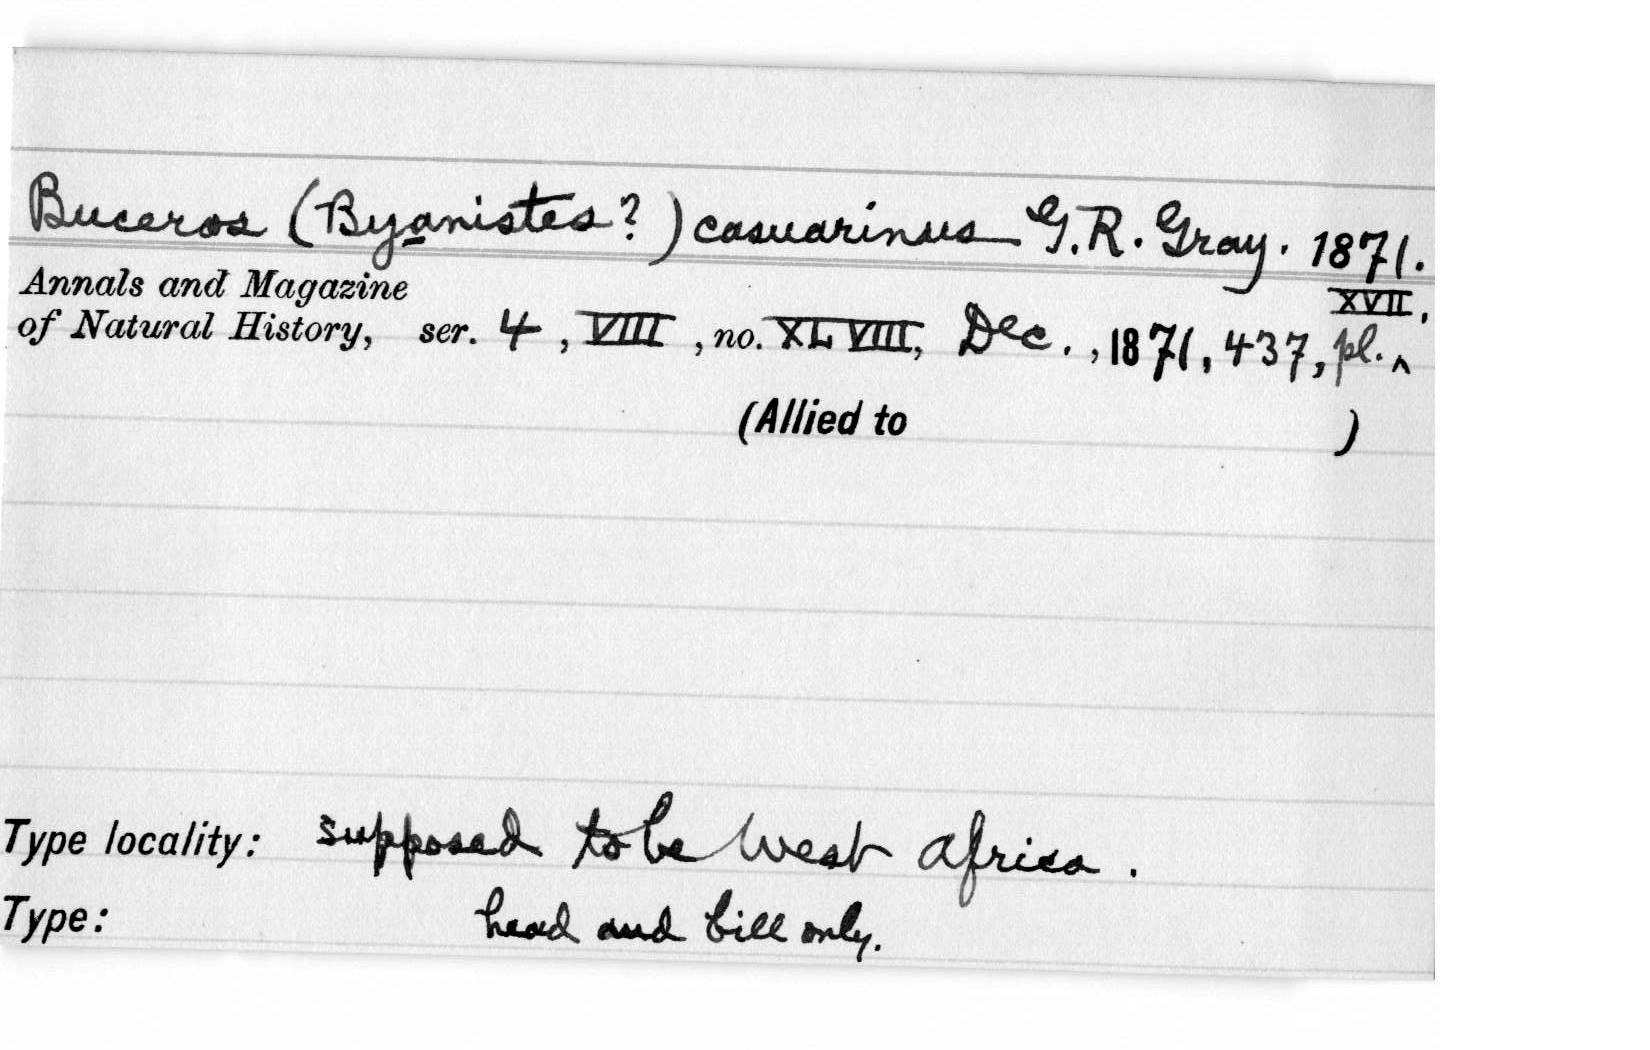 Buceros (Byanistes?) casuarinus G.R. Gray. 1871.
Annals and Magazine
of Natural History, ser. 4, VIII, no. XLVIII, Dec., 1871, 437, pl. ^ XVII,
(Allied to )
Type locality: supposed to be West Africa.
Type: head and bill only.